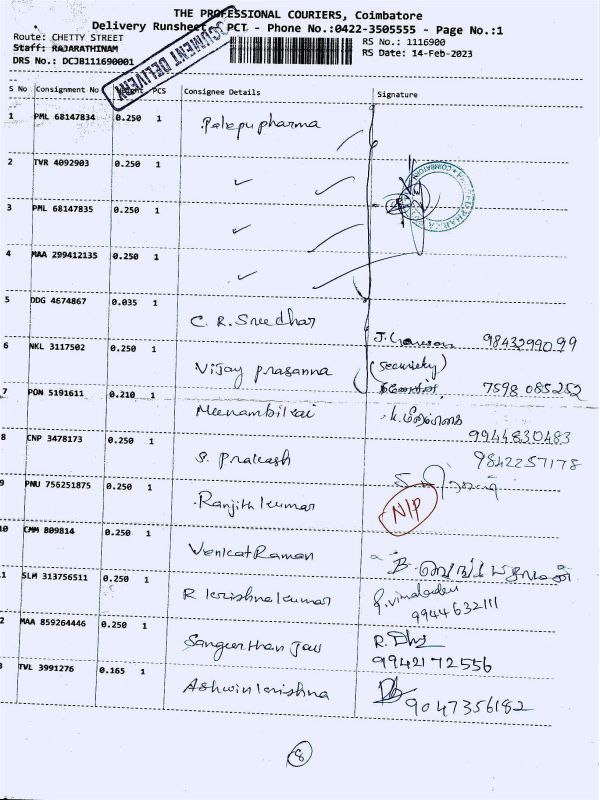 THE PROFESSIONAL COURIERS, Coimbatore
Delivery Runsheet PCT - Phone No.:0422-3505555 - Page No.:1
Route: CHETTY STREET
RS No.: 1116900
Staff: RAJARATHINAM
RS Date: 14-Feb-2023
DRS No.: DCJB111690001
DOCUMENT DELIVERY
S No Consignment No PCS Consignee Details Signature
1 PML 68147834 0.250 1 Palepu pharma
2 TVR 4092903 0.250 1
3 PML 68147835 0.250 1
4 MAA 299412135 0.250 1
5 DDG 4674867 0.035 1 C. R. Sreedhar 9843299099
6 NKL 3117502 0.250 1 Vijay prasanna (Security) 7598 085252
7 PON 5191611 0.210 1 Meenambikai 9944830483
8 CNP 3478173 0.250 1 S. prakash 9842257178
9 PNU 756251875 0.250 1 Ranjith kumar N/P
10 CMM 809814 0.250 1 Venkat Raman
1 SLM 313756511 0.250 1 R krishna kumar 9944632111
2 MAA 859264446 0.250 1 9942172556
3 TVL 3991276 0.165 1 Ashwin krishna 9047356182
8